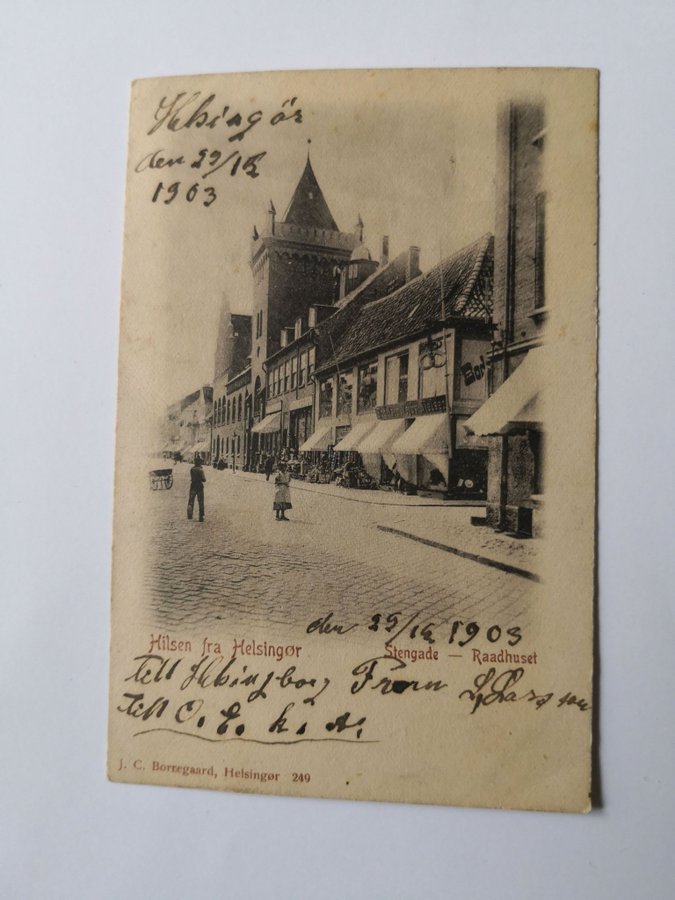 Helsingör
den 29/12
1903
den 29/12 1903
Hilsen fra Helsingør
Stengade — Raadhuset
tell Helsingborg Fron L. Larsson
tell O. E. k. A.
J. C. Borregaard, Helsingør 249